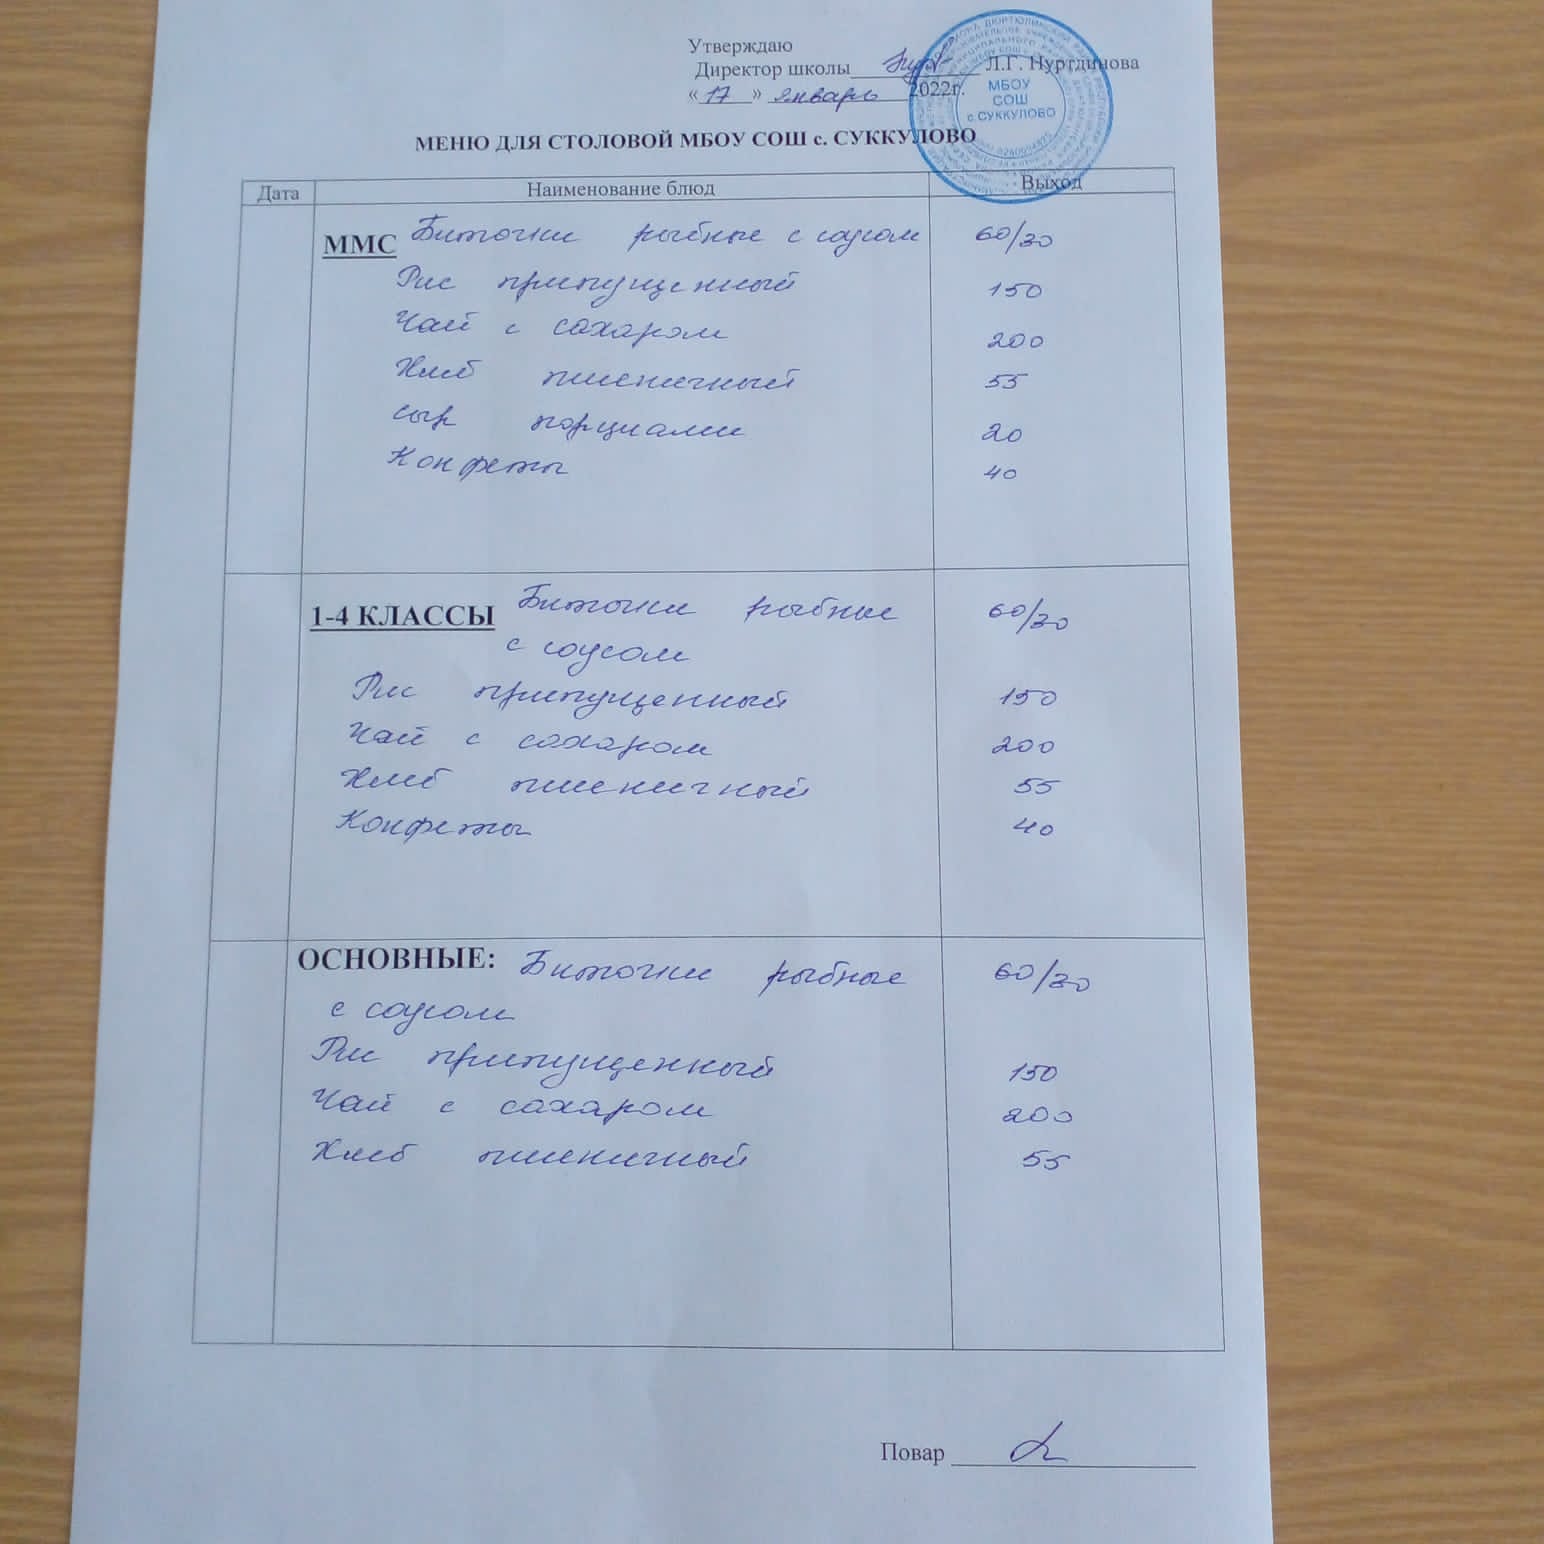 Утверждаю
Директор школы Л.Г. Нуртдинова
« 17 » январь 2022г.
МБОУ
СОШ
с.СУККУЛОВО
МЕНЮ ДЛЯ СТОЛОВОЙ МБОУ СОШ с. СУККУЛОВО
Дата Наименование блюд Выход
ММС Биточки рыбные с соусом 60/30
Рис припущенный 150
Чай с сахаром 200
Хлеб пшеничный 55
Сыр порциями 20
Конфеты 40
1-4 КЛАССЫ Биточки рыбные 60/30
с соусом
Рис припущенный 150
Чай с сахаром 200
Хлеб пшеничный 55
Конфеты 40
ОСНОВНЫЕ: Биточки рыбные 60/30
с соусом
Рис припущенный 150
Чай с сахаром 200
Хлеб пшеничный 55
Повар